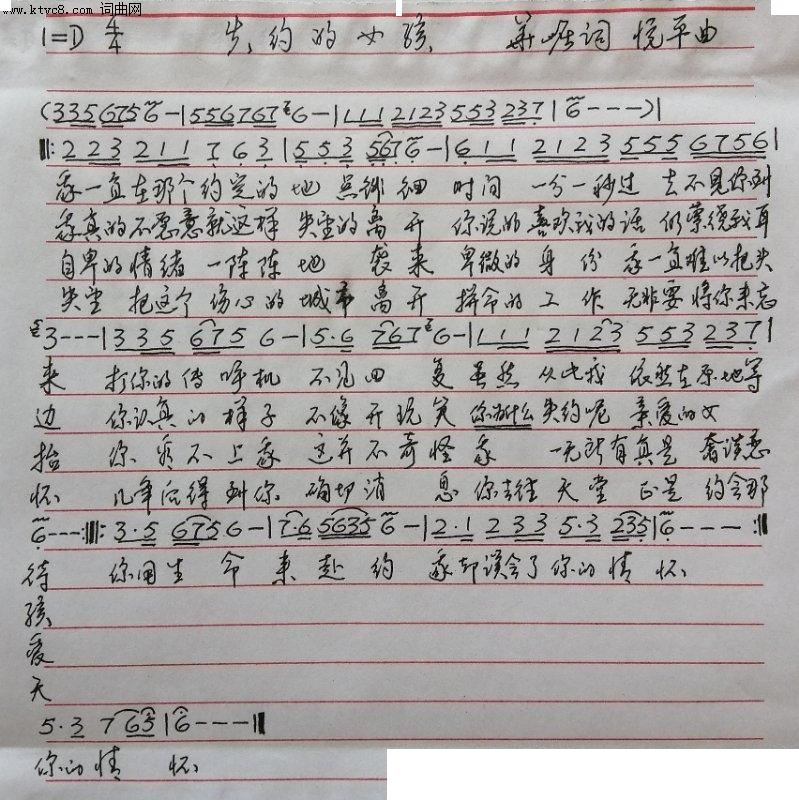 www.ktvc8.com 词曲网
1=D 4/4 失约的女孩 华崖词 悦平曲
(335 6756- | 556767 6- | 111 2123 553 237 | 6--- )|
‖: 223 211 7 63 | 553 5676- | 611 2123 555 6756 |
我一直在那个约定的地点徘徊 时间一分一秒过去不见你到
我真的不愿意就这样失望的离开 你说的喜欢我的话仍萦绕我耳
自卑的情绪一阵阵地袭来 卑微的身份我一直难以把头
失望把这个伤心的城市离开 拼命的工作无非要将你来忘
3--- | 335 675 6- | 5·6 767 6- | 111 2123 553 237 |
来 打你的传呼机 不见回复 虽然从此我依然在原地等
边 你认真的样子 不像开玩笑 你为什么失约呢亲爱的女
抬 你看不上我 这并不奇怪 我一无所有真是奢谈恋
怀 几年后得到你 确切消息 你去往天堂正是约会那
6---:‖: 3·5 675 6- | 7·6 5635 6- | 2·1 233 5·3 235 | 6---- :‖
待 你用生命来赴约 我却误会了你的情怀
孩
爱
天
5·3 7 65 | 6---‖
你的情怀